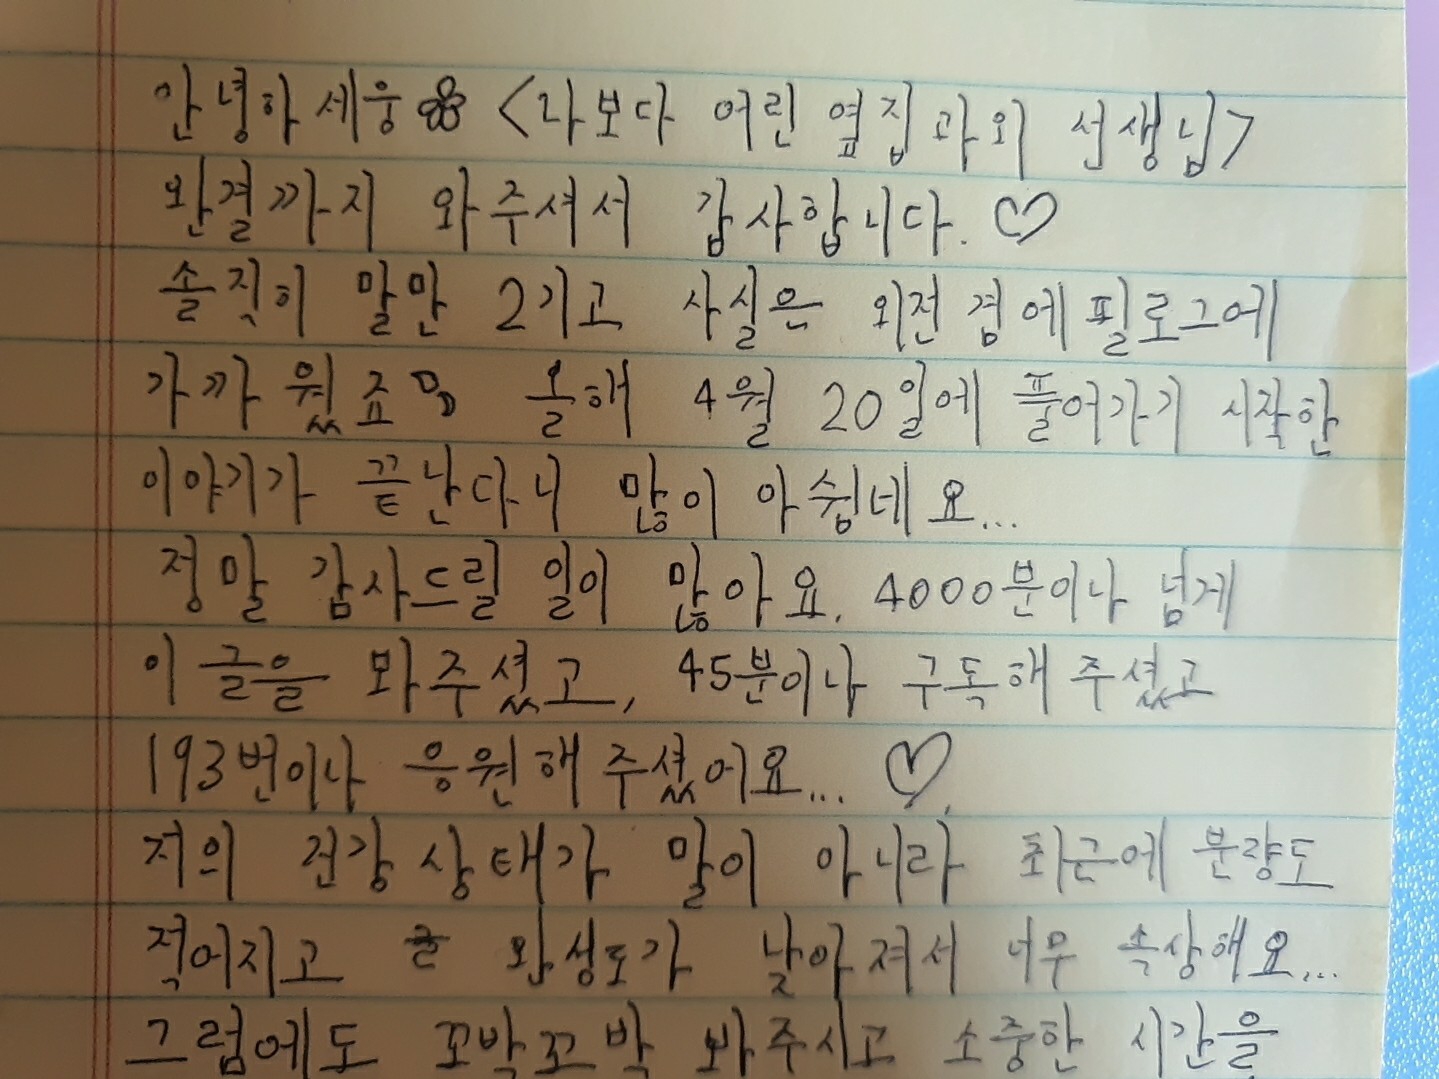 안녕하세웅 <나보다 어린 옆집 과외 선생님>
완결까지 와주셔서 감사합니다. ♡
솔직히 말만 2기고 사실은 외전 겸 에필로그에
가까웠죠 올해 4월 20일에 풀어가기 시작한
이야기가 끝난다니 많이 아쉽네요...
정말 감사드릴 일이 많아요. 4000분이나 넘게
이 글을 봐주셨고, 45분이나 구독해 주셨고
193번이나 응원해 주셨어요... ♡
저의 건강 상태가 말이 아니라 최근에 분량도
적어지고 완성도가 낮아져서 너무 속상해요...
그럼에도 꼬박꼬박 봐주시고 소중한 시간을